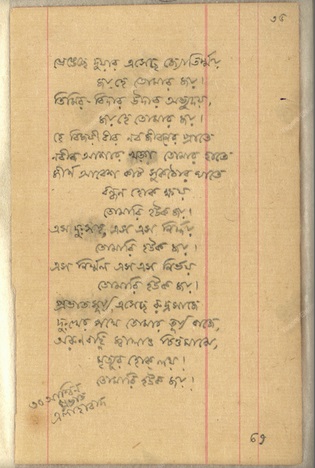 ৩৫
ভেঙেছে দুয়ার এসেছ জ্যোতির্ম্ময়
তোমারি হউক জয়।
তিমির-বিদার উদার অভ্যুদয়,
তোমারি হউক জয়।
হে বিজয়ী বীর নব জীবনের প্রাতে
নবীন আশার খড়্গ তোমার হাতে
জীর্ণ আবেশ কাট সুকঠোর ঘাতে
বন্ধন হোক ক্ষয়
তোমারি হউক জয়।
এস দুঃসহ, এস এস নির্দয়
তোমারি হউক জয়।
এস নির্ম্মল এস এস নির্ভয়
তোমারি হউক জয়।
প্রভাতসূর্য্য এসেছ রুদ্রসাজে
দুঃখের পথে তোমার তূর্য্য বাজে,
অরুণবহ্নি জ্বালাও চিত্তমাঝে,
মৃত্যুর হোক লয়।
তোমারি হউক জয়।
৩০ আশ্বিন
প্রভাত
এলাহাবাদ